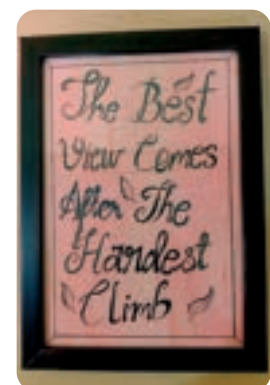 The Best
View Comes
After The
Hardest
Climb